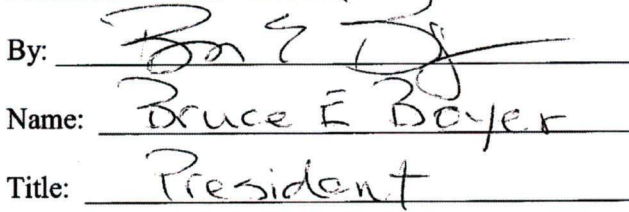 By:
Name: Bruce E Boyer
Title: President